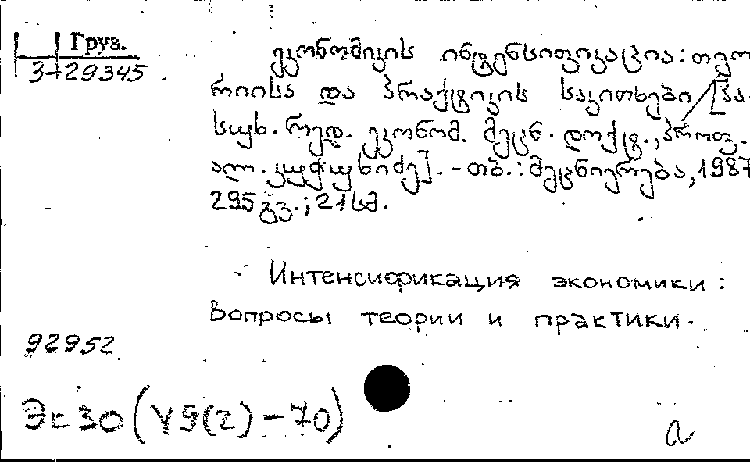 Груз.
3-29345
ეკონომიკის ინტენსიფიკაცია: თეო-
რიისა და პრაქტიკის საკითხები / [პა-
სუხ. რედ. ეკონომ. მეცნ. დოქტ., პროფ.
ალ. კუჭუხიძე]. - თბ.: მეცნიერება, 1987
295 გვ.; 21 სმ.
Интенсификация экономики:
вопросы теории и практики.
92952
Эс30 (У9(2)-70)
а